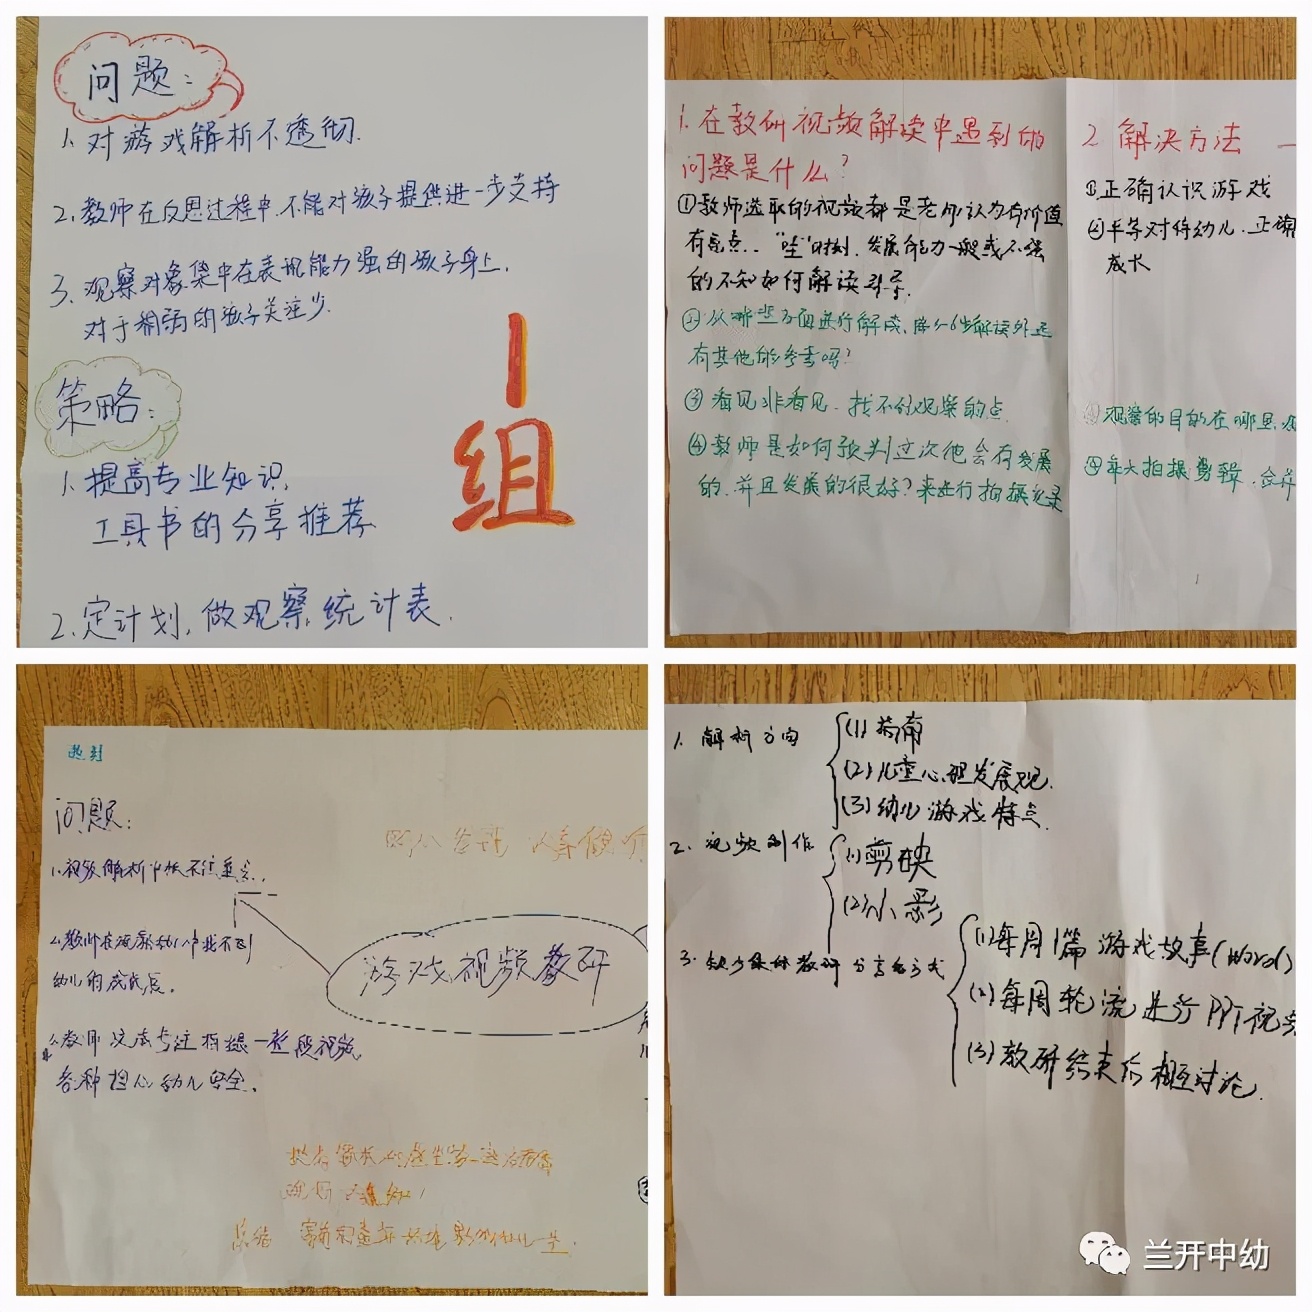 问题:
1. 对游戏解析不透彻.
2. 教师在反思过程中.不能对孩子提供进一步支持
3. 观察对象集中在表现能力强的孩子身上.
对于稍弱的孩子关注少.
策略:
1. 提高专业知识.
工具书的分享推荐
2. 定计划,做观察统计表.
1组
1. 在教研视频解读中遇到的
问题是什么?
①教师选取的视频都是老师认为有价值
有亮点.. "哇"时刻.发展能力一般或不强
的不知如何解读引导.
②从哪些方面进行解读,除
有其他的参考吗?
③看见非看见.找不到观察的点
④教师是如何预判这次他会有发展
的.并且发展的很好?来进行拍摄记录
2 解决方法
①正确认识游戏
②平等对待幼儿.正确
成长
观察的目的在哪里.
拍摄剪辑.
问题:
1.视频解析中抓不住重点.
2.教师在 中找不到
幼儿的 点.
教师没有专注拍摄一些段视频
各种担心幼儿安全.
游戏视频教研
总结
1. 解析方向
(1)指南
(2)儿童心理发展观.
(3)幼儿游戏特点.
2. 视频制作
(1)剪映
(2)小影
3. 缺少集体教研分享的方式
(1)每周1篇游戏故事(Word)
(2)每周轮流进行PPT视
(3)教研结束后相互讨论.
兰开中幼